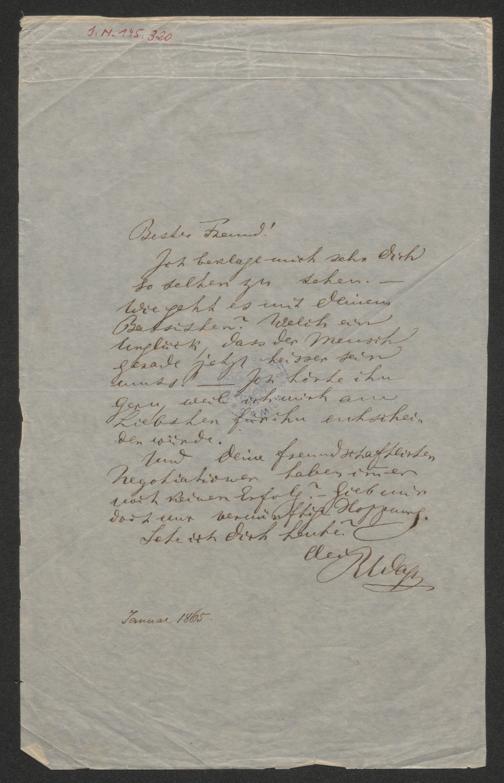 I. N. 145.320
Bester Freund!
Ich beklage mich sehr Dich
so selten zu sehen. —
Wie geht es mit Deinem
Bassisten? Welch ein
Unglück, dass der Mensch
gerade jetzt heiser sein
muss! — Ich hörte ihn
gern, weil ich mich am
Liebsten für ihn entschei-
den würde.
Und Deine freundschaftlichen
Negotiationen haben immer
noch keinen Erfolg? Gieb mir
doch nur vernünftige Hoffnung.
Seh ich Dich heute?
Dein
RWagn
Januar 1865.